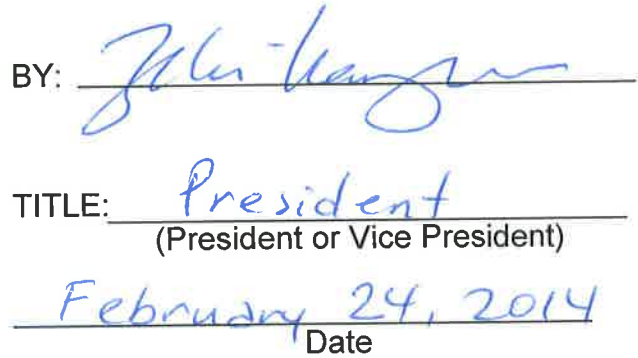 BY:
TITLE: President
(President or Vice President)
February 24, 2014
Date